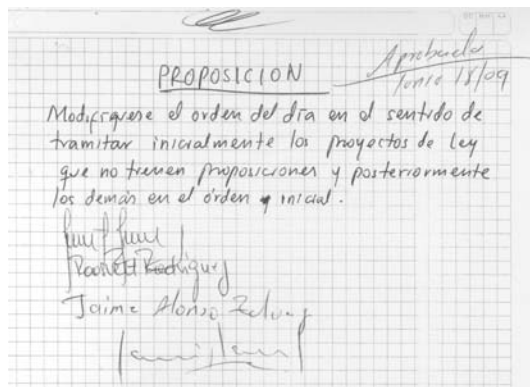 Aprobada
Junio 18/09
PROPOSICION
Modifíquese el orden del día en el sentido de
tramitar inicialmente los proyectos de Ley
que no tienen proposiciones y posteriormente
los demás en el órden inicial.
Rodríguez
Jaime Alonso